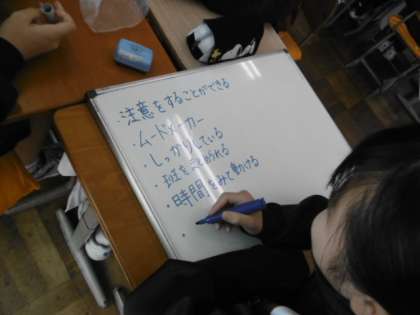 ・注意をすることができる
・ムードメーカー
・しっかりしている
・班をまとめられる
・時間をみて動ける
・